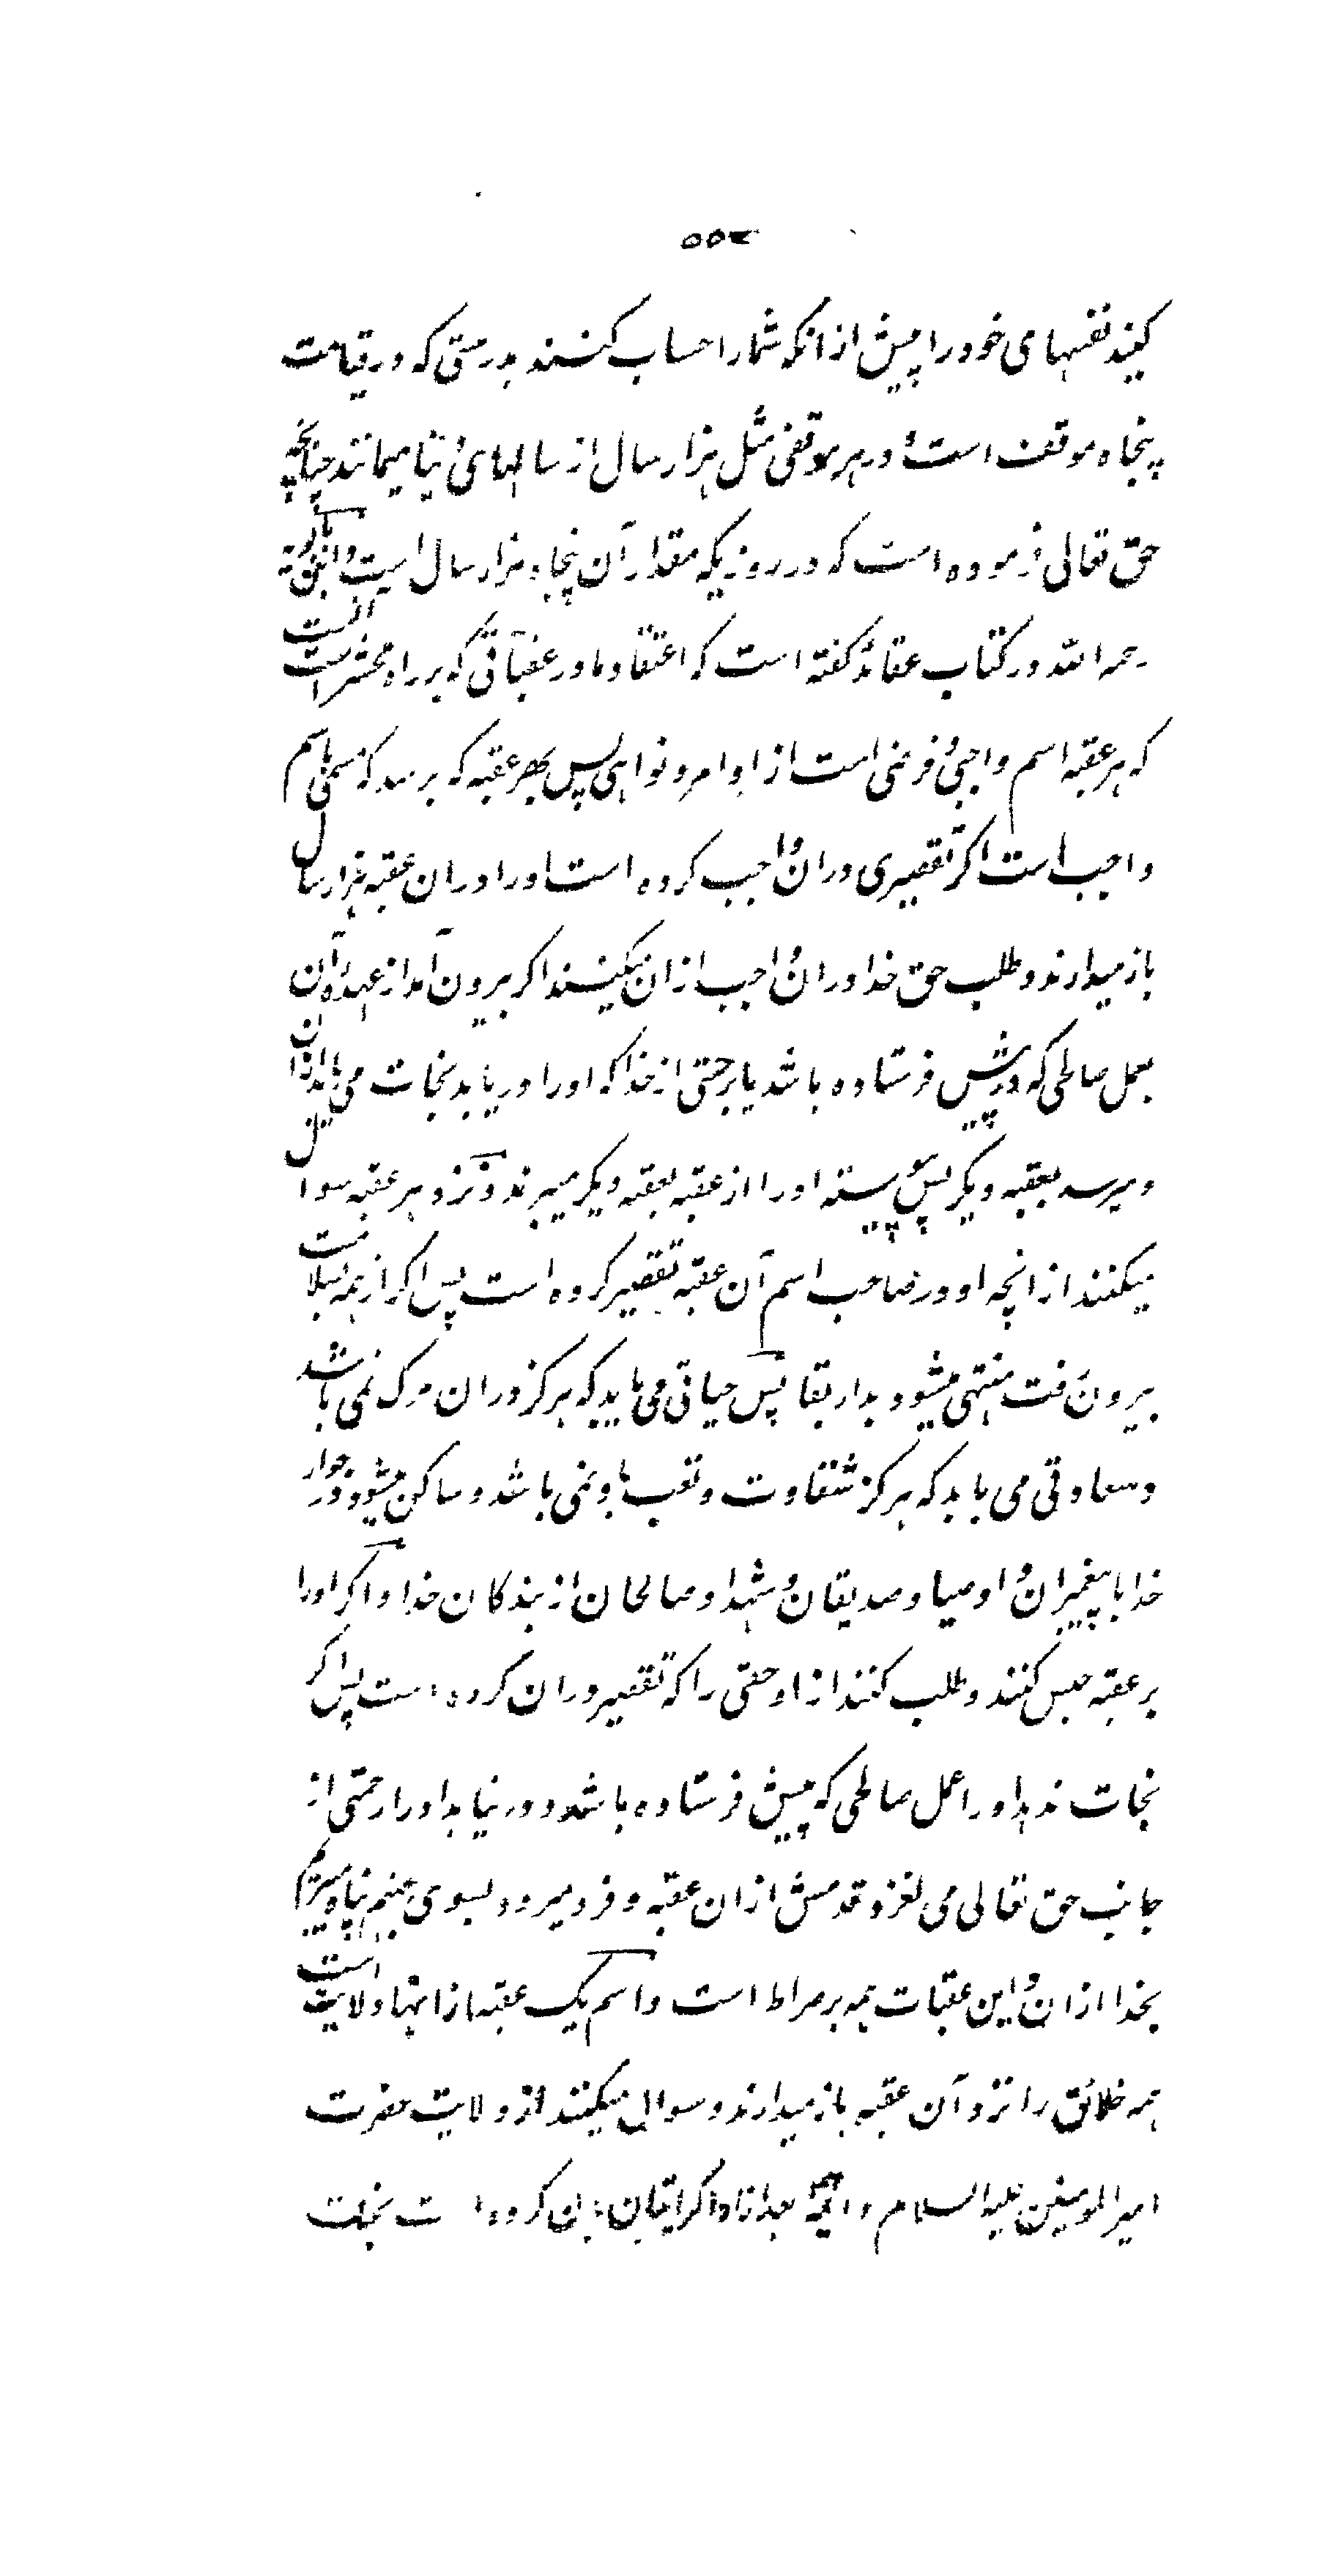 ۵۵۲
کنید نفسهای خود را پیش از انکه شما را حساب کنند بدرستی که در قیامت
پنجاه موقف است و در هر موقفی مثل هزار سال از سالهای دنیا میمانند چنانچه
حق تعالی فرموده است که در روزیکه مقدار آن پنجاه هزار سال است و ابن بابویه
رحمه الله در کتاب عقائد گفته است که اعتقاد ما در عقباتی که بر راه محشر است انست
که هر عقبه اسم واجبی و فرضی است از اوامر و نواهی پس بهر عقبه که برسد که مسمی باسم
واجب است اکر تقصیری دران واجب کرده است او را دران عقبه هزار سال
باز میدارند و طلب حق خدا دران واجب ازان میکنند اکر بیرون آمد از عهده آن
بعمل صالحی که در پیش فرستاده باشد یا برحمتی از خدا که او را دریابد نجات می یابد ازان
و میرسد بعقبه دیکر پس پیوسته او را از عقبه بعقبه دیکر میبرند و نزد هر عقبه سوال
میکنند از انچه او در صاحب اسم آن عقبه تقصیر کرده است پس اکر از همه بسلامت
بیرون رفت منتهی میشود بدار بقا پس حیاتی می یابد که هرکز دران مرک نمی باشد
و سعادتی می یابد که هرکز شقاوت و تعب باو نمی باشد و ساکن میشود در جوار
خدا با پیغمبران و اوصیا و صدیقان و شهدا و صالحان از بندکان خدا و اکر او را
بر عقبه حبس کنند و طلب کنند از او حقی را که تقصیر دران کرده است پس اکر
نجات ندهد او را عمل صالحی که پیش فرستاده باشد و در نیابد او را رحمتی از
جانب حق تعالی می لغزد قدمش ازان عقبه و فرو میرود بسوی جهنم پناه میبریم
بخدا ازان و این عقبات همه بر صراط است و اسم یک عقبه از انها ولایت است
همه خلائق را نزد آن عقبه باز میدارند و سوال میکنند از ولایت حضرت
امیر المومنین علیه السلام و ائمه بعد از او اکر کرده نجات